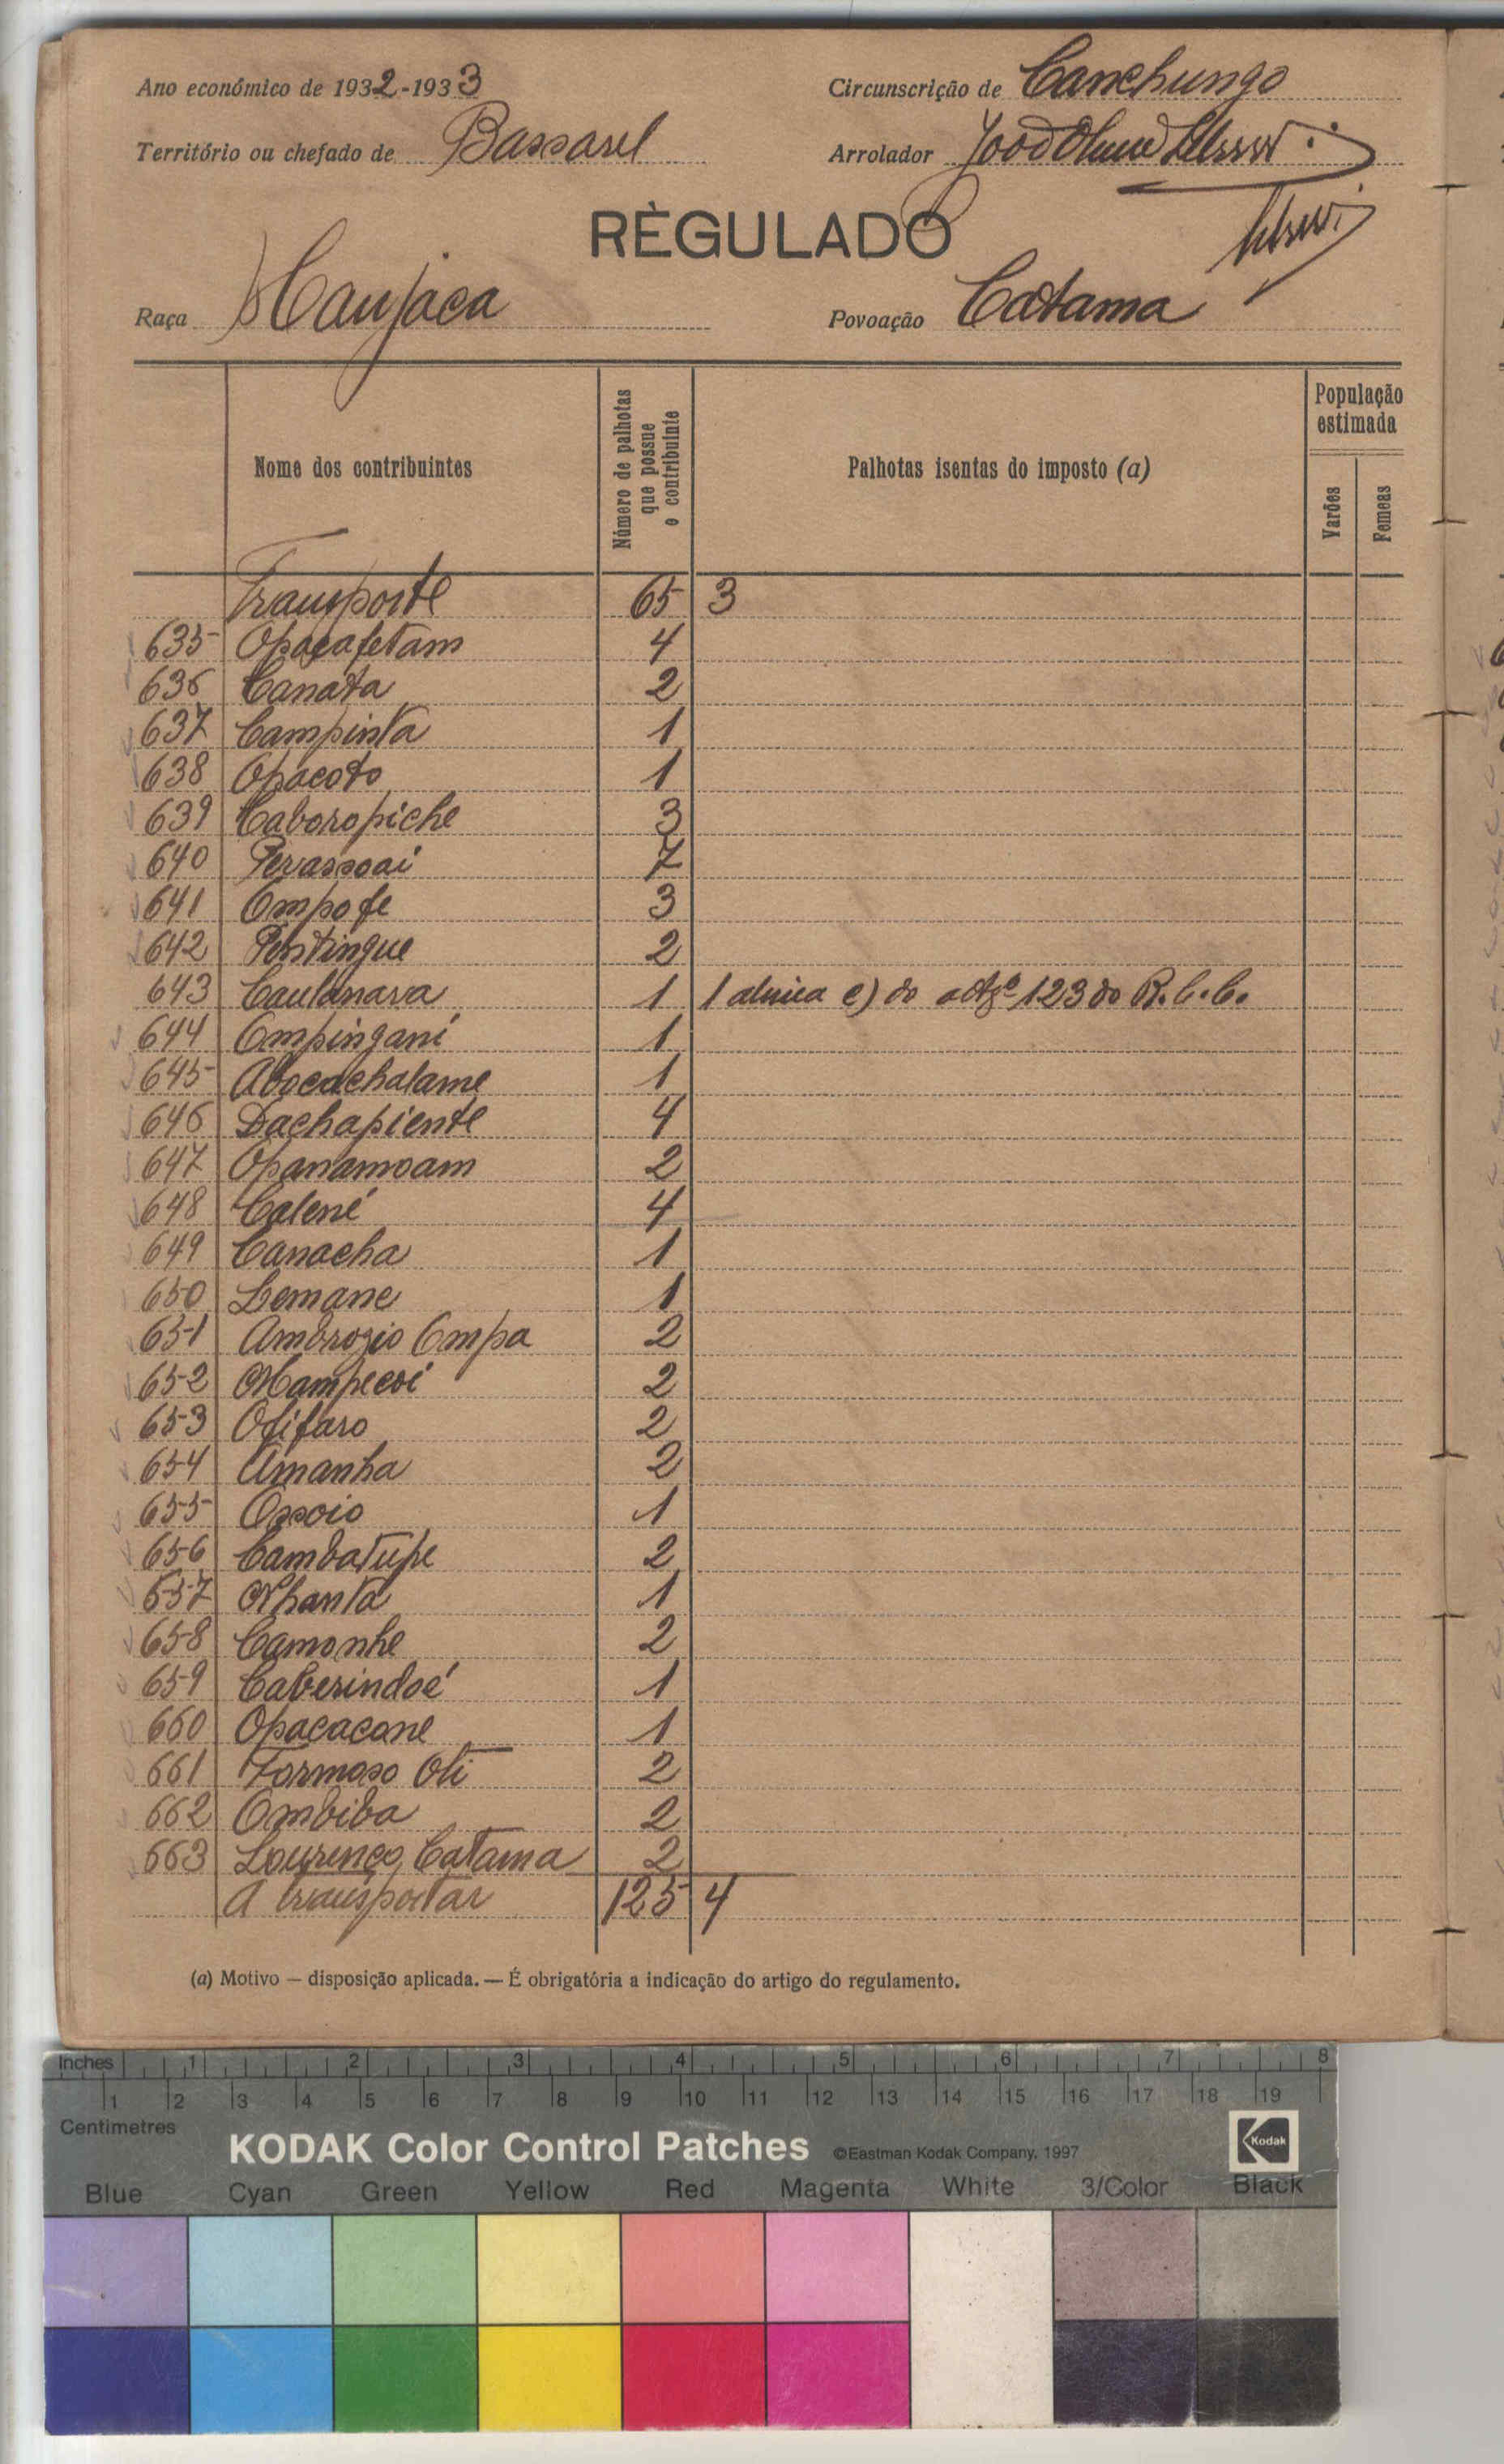 Ano económico de 1932-1933
Circunscrição de Canchungo
Território ou chefado de Bassarel
Arrolador João
RÈGULADO
Raça Manjaca
Povoação Catama
Nome dos contribuintes
Número de palhotas que possue o contribuinte
Palhotas isentas do imposto (a)
População estimada
Varões
Femeas
Transporte 65 3
635 Opacafetam 4
636 Canata 2
637 Campinta 1
638 Opacoto 1
639 Caboropiche 3
640 Perassoai 7
641 Ompofe 3
642 Pentingue 2
643 Caulanara 1 1 alinea e) do artgº 123 do R.C.C.
644 Ompingani 1
645 Abocachalame 1
646 Dachapiente 4
647 Opanamoam 2
648 Calené 4
649 Canacha 1
650 Lemane 1
651 Ambrozio Ompa 2
652 Mampecoi 2
653 Ofifaro 2
654 Umanha 2
655 Ossoio 1
656 Cambatupe 2
657 Nhanta 1
658 Camonhe 2
659 Caberindoé 1
660 Opacacane 1
661 Formoso Oti 2
662 Ombiba 2
663 Lourenço Catama 2
A transportar 125 4
(a) Motivo — disposição aplicada. — É obrigatória a indicação do artigo do regulamento.
Inches 1 2 3 4 5 6 7 8
1 2 3 4 5 6 7 8 9 10 11 12 13 14 15 16 17 18 19
Centimetres
KODAK Color Control Patches ©Eastman Kodak Company, 1997 Kodak
Blue Cyan Green Yellow Red Magenta White 3/Color Black